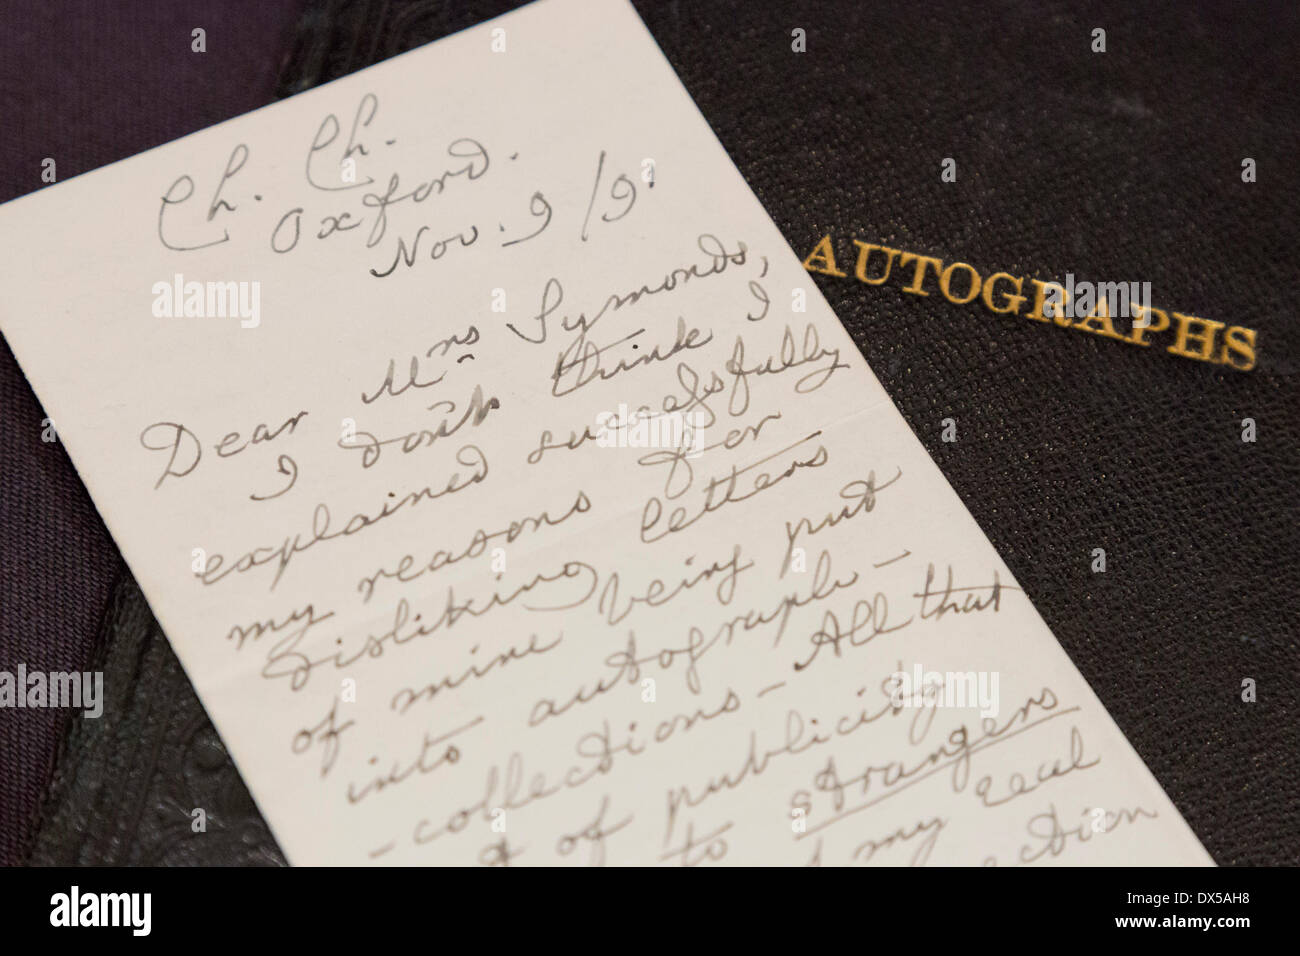 Ch. Ch.
Oxford.
Nov. 9/91.
Dear Mrs Symonds,
I don't think I
explained successfully
my reasons for
disliking letters
of mine being put
into autograph-
-collections - All that
of publicity
to strangers
my real
AUTOGRAPHS
alamy
alamy
Image ID: DX5AH8
www.alamy.com